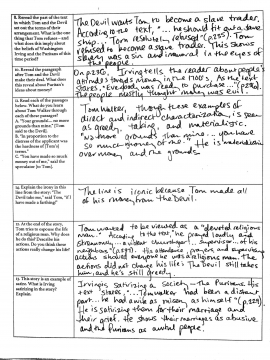 8. Reread the part of the text
in which Tom and the Devil
set out the terms of their
arrangement. What is the one
thing that Tom refuses - and
what does this imply about
the beliefs of Washington
Irving and the Puritans of this
time period?
The Devil wants Tom to become a slave trader.
According to our text, "...he should fit out a slave
ship. Tom resolutely refused" (p235). Tom
refused to become a slave trader. This shows
slavery was a sin and immoral in the eyes of
the people.
9. Reread the paragraph
after Tom and the Devil
make their deal. What does
this reveal about Puritan's
ideas about money?
On p236, Irving tells the reader about people's
attitudes toward money in the 1700's. As the text
states, "Everybody was ready to purchase..." (p236).
The people mostly thought money was
10. Read each of the passages
below. What do you learn
about Tom Walker through
each of these passages?
A. "Your grounds!... no more
your grounds than mine," (Tom
said to the Devil).
B. "In proportion to the
distress of the applicant was
the hardness of [Tom's]
terms."
C. "You have made so much
money out of me," said the
speculator (to Tom).
Tom Walker, through these examples of
direct and indirect characterization, is seen
as greedy, taking, and materialistic.
over money and the grounds.
11. Explain the irony in this
line from the story: "The
Devil take me," said Tom, "if I
have made a farthing!"
The line is ironic because Tom made all
of his money from the Devil.
12. At the end of the story,
Tom tries to espouse the life
of a religious man. Why
does he do this? Describe his
actions. Do you think these
actions really change his life?
Tom wanted to be viewed as a "devoted religious
man." According to the text, "he prayed loudly and
strenuously... a violent churchgoer... supervisor... of his
neighbors" (p237). His attendance, prayers and supervisory
actions showed everyone he was a religious man. The
actions did not change his life. The Devil still takes
him, and he's still greedy.
13. This story is an example of
satire. What is Irving
satirizing in the story?
Explain.
Irving is satirizing a society - the Puritans. His
text states, "...
part... he had a wife as miserly as himself" (p229).
He is satirizing them for their marriage and
their greed. He shows their marriages as abusive
and the Puritans as awful people.